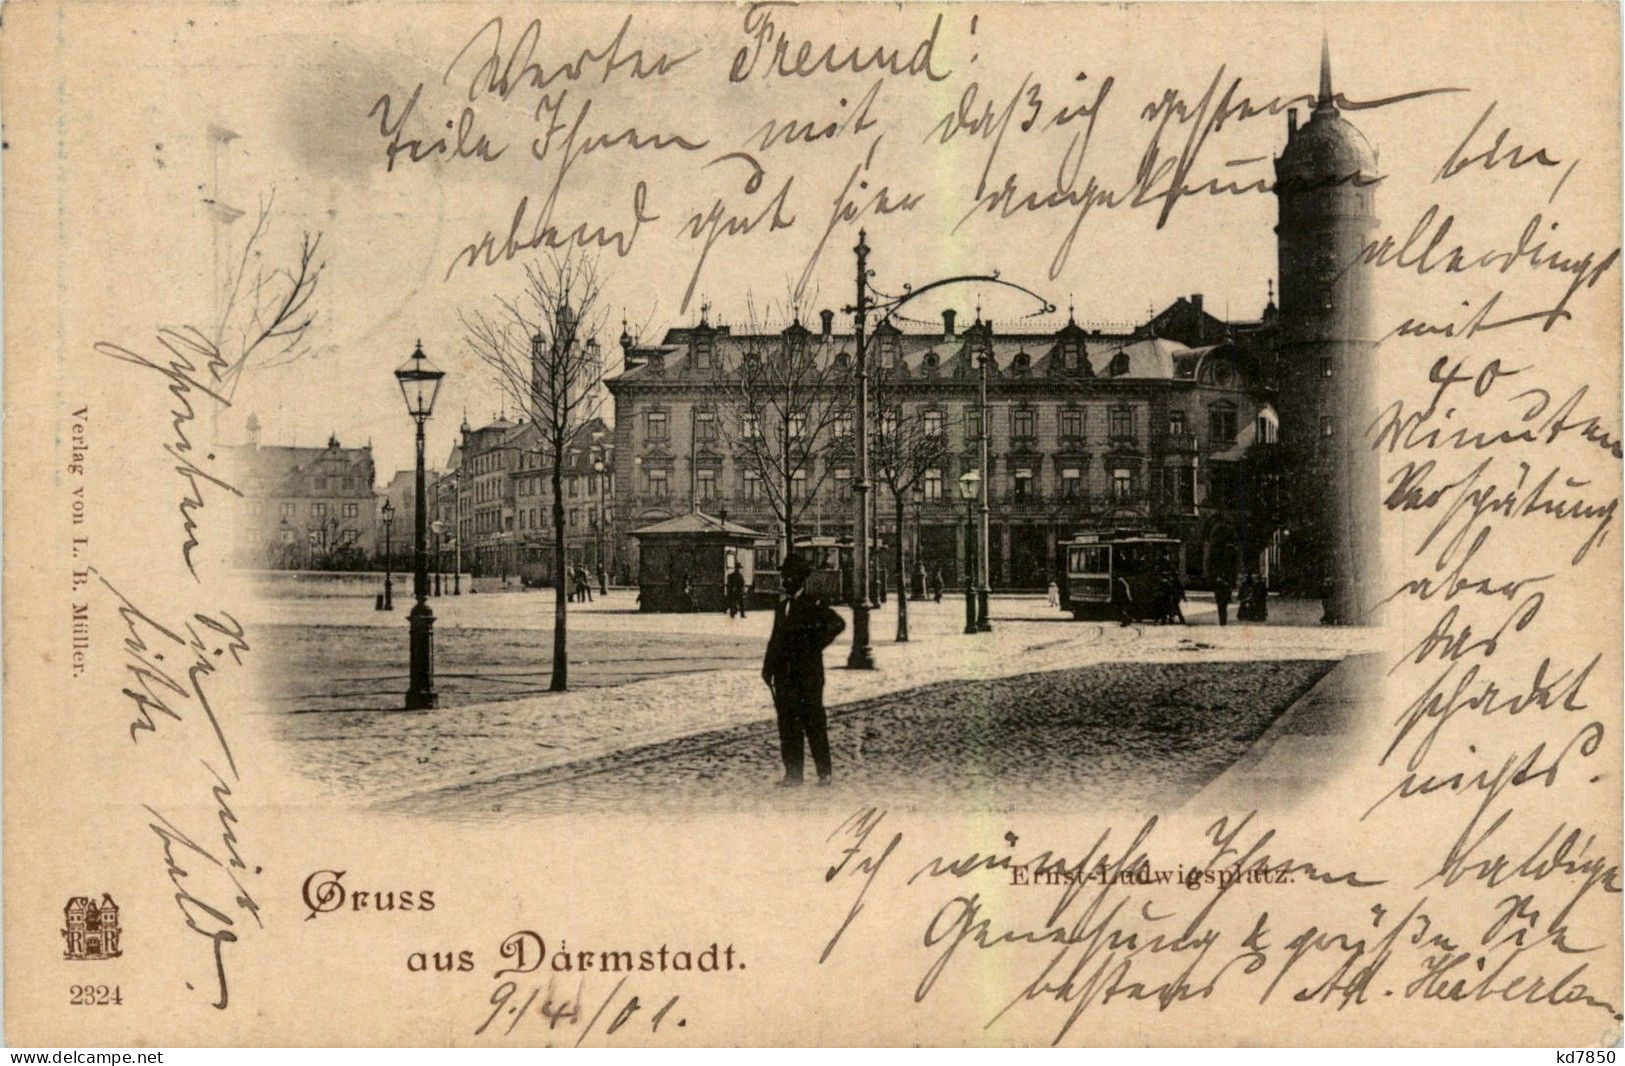 Werter Freund!
Teile Ihnen mit, daß ich gestern
abend gut hier angekommen bin,
allerdings
mit
40
Minuten
Verspätung,
aber
das
schadet
nichts.
Ich wünsche Ihnen baldige
Genesung & grüße Sie
bestens Ad.
Schreiben Sie mir
bitte bald.
Ernst-Ludwigsplatz.
Gruss
aus Darmstadt.
9./4./01.
Verlag von L. B. Müller.
RR
2324
www.delcampe.net
kd7850